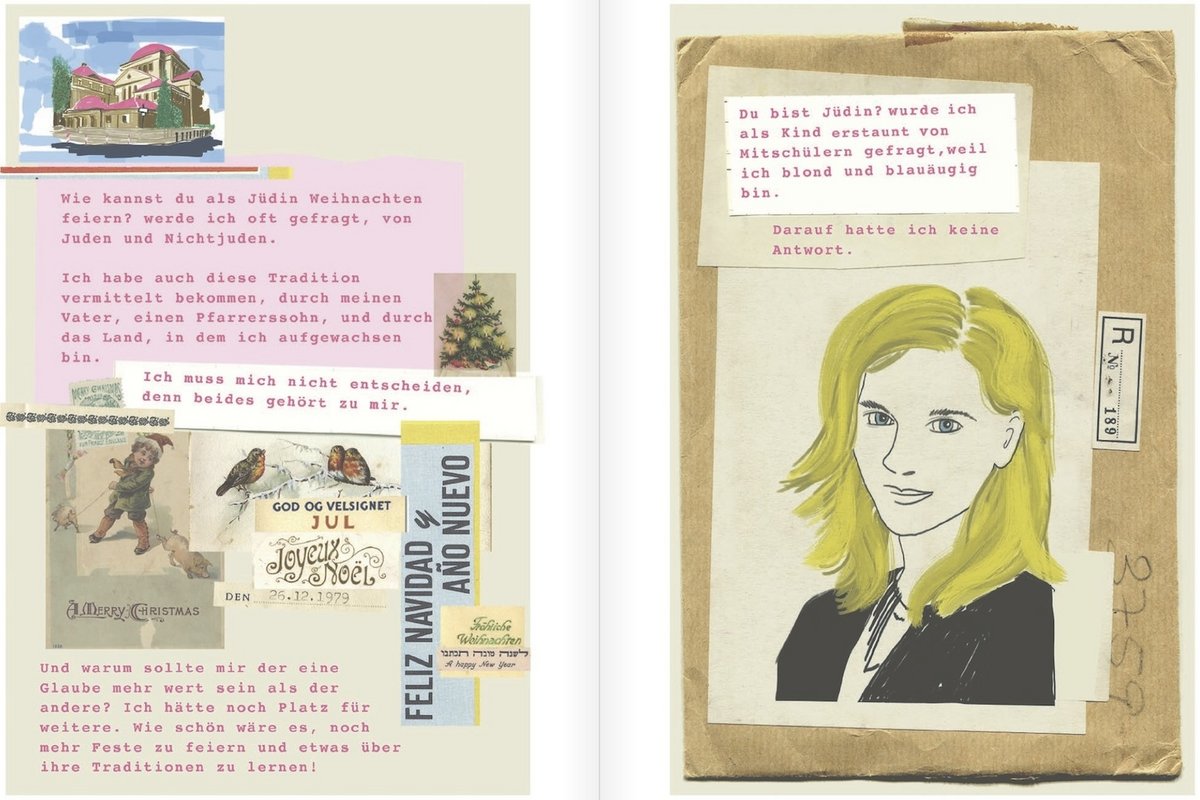 Wie kannst du als Jüdin Weihnachten
feiern? werde ich oft gefragt, von
Juden und Nichtjuden.
Ich habe auch diese Tradition
vermittelt bekommen, durch meinen
Vater, einen Pfarrerssohn, und durch
das Land, in dem ich aufgewachsen
bin.
Ich muss mich nicht entscheiden,
denn beides gehört zu mir.
GOD OG VELSIGNET
JUL
Joyeux
Noël
DEN 26.12.1979
A MERRY CHRISTMAS
FELIZ NAVIDAD y
AÑO NUEVO
Fröhliche
Weihnachten
לשנה טובה תכתבו
A happy New Year
Und warum sollte mir der eine
Glaube mehr wert sein als der
andere? Ich hätte noch Platz für
weitere. Wie schön wäre es, noch
mehr Feste zu feiern und etwas über
ihre Traditionen zu lernen!
Du bist Jüdin? wurde ich
als Kind erstaunt von
Mitschülern gefragt,weil
ich blond und blauäugig
bin.
Darauf hatte ich keine
Antwort.
R
No 189